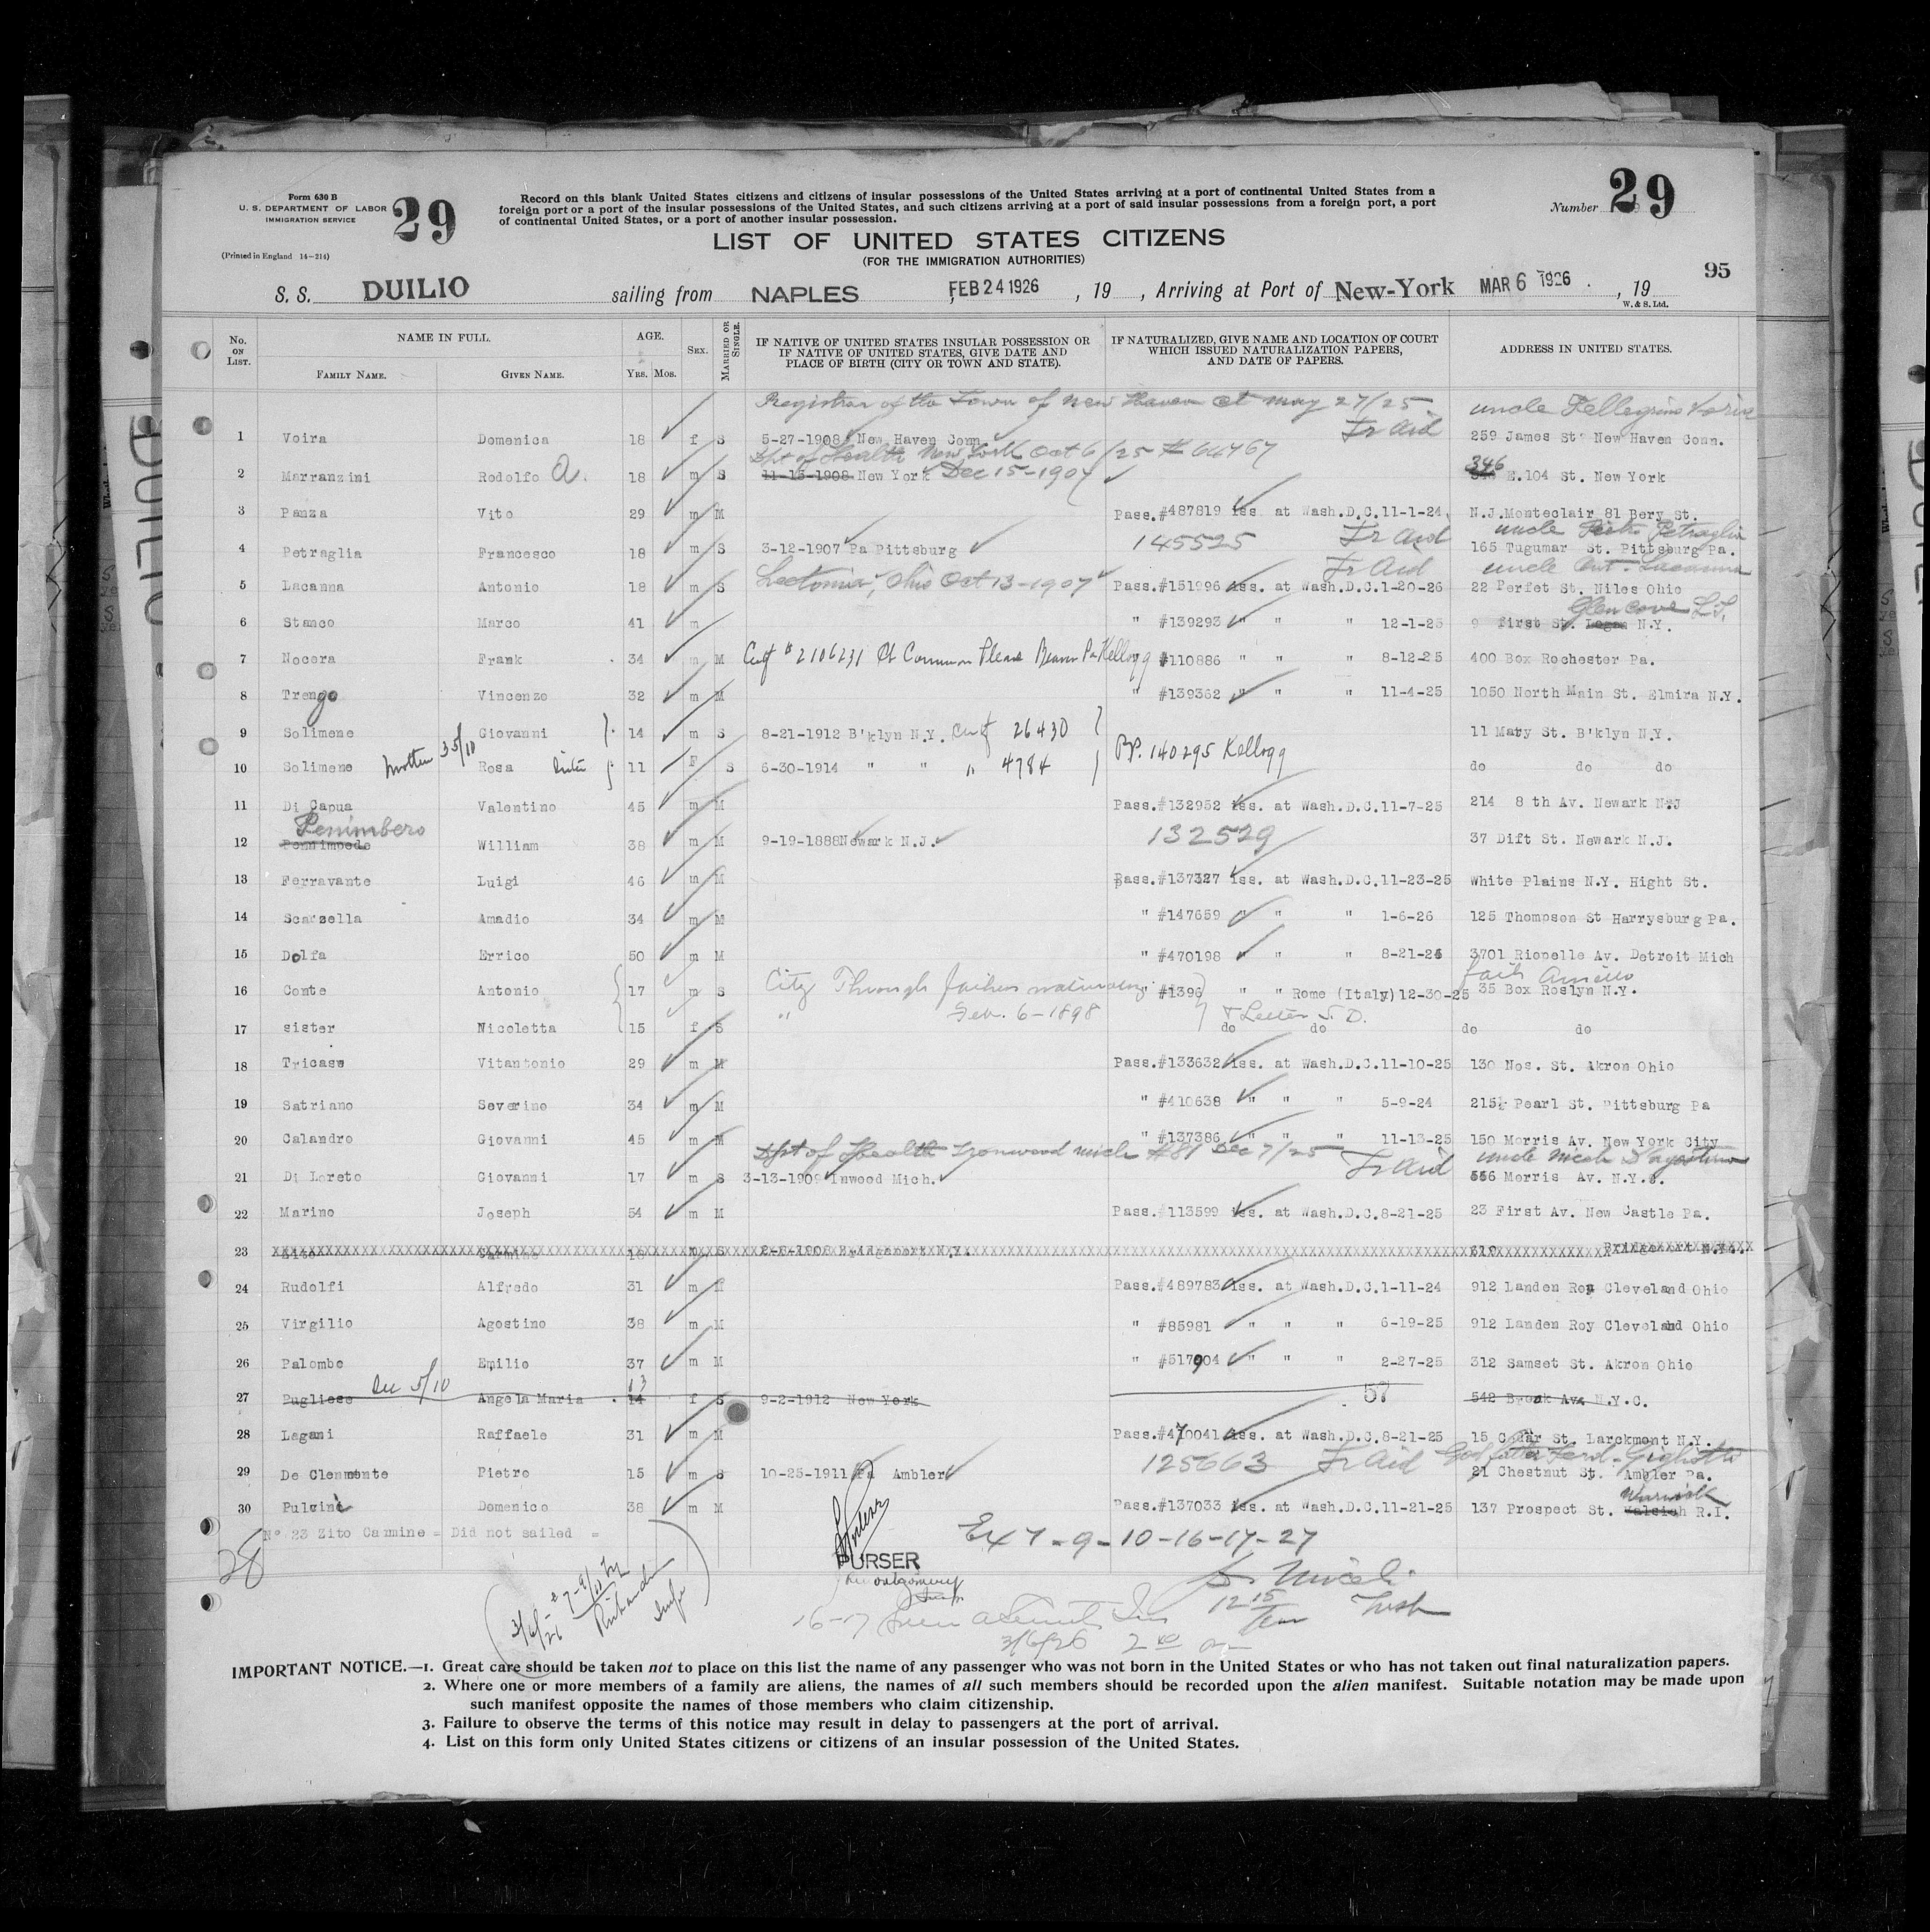 Form 630 B
U. S. DEPARTMENT OF LABOR
IMMIGRATION SERVICE
29
(Printed in England 14-214)
Record on this blank United States citizens and citizens of insular possessions of the United States arriving at a port of continental United States from a
foreign port or a port of the insular possessions of the United States, and such citizens arriving at a port of said insular possessions from a foreign port, a port
of continental United States, or a port of another insular possession.
Number 29
LIST OF UNITED STATES CITIZENS
(FOR THE IMMIGRATION AUTHORITIES)
95
S. S. DUILIO sailing from NAPLES FEB 24 1926 , 19 , Arriving at Port of New-York MAR 6 1926 . , 19
W. & S. Ltd.
No. ON LIST. NAME IN FULL. FAMILY NAME. GIVEN NAME. AGE. YRS. MOS. SEX. MARRIED OR SINGLE. IF NATIVE OF UNITED STATES INSULAR POSSESSION OR IF NATIVE OF UNITED STATES, GIVE DATE AND PLACE OF BIRTH (CITY OR TOWN AND STATE). IF NATURALIZED, GIVE NAME AND LOCATION OF COURT WHICH ISSUED NATURALIZATION PAPERS, AND DATE OF PAPERS. ADDRESS IN UNITED STATES.
Registrar of the Town of New Haven Ct May 27/25 Fr Aid uncle Pellegrino
1 Voira Domenica 18 f S 5-27-1908 New Haven Conn 259 James St. New Haven Conn.
Dpt of Health New York Oct 6/25 # 66767
2 Marranzini Rodolfo A. 18 m S 11-13-1908 New York Dec 15-1907 346 E.104 St. New York
3 Panza Vito 29 m M Pass.#487819 iss. at Wash.D.C.11-1-24 N.J.Monteclair 81 Bery St.
145525 Fr Aid uncle Petraglia
4 Petraglia Francesco 18 m S 3-12-1907 Pa Pittsburg 165 Tugumar St. Pittsburg Pa.
Fr Aid uncle Ant. Lacanna
5 Lacanna Antonio 18 m S Leetonia, Ohio Oct 13-1907 Pass.#151996 iss. at Wash.D.C.1-20-26 22 Perfet St. Niles Ohio
Glen Cove L.I.
6 Stanco Marco 41 m " #139293 " " " 12-1-25 9 first St. N.Y.
7 Nocera Frank 34 m M Cert # 2106231 Ct Common Pleas Beaver Pa Kellogg #110886 " " " 8-12-25 400 Box Rochester Pa.
8 Trengo Vincenzo 32 m M " #139362 " " " 11-4-25 1050 North Main St. Elmira N.Y.
9 Solimene Giovanni 14 m S 8-21-1912 B'klyn N.Y. Cert 26430 11 Maty St. B'klyn N.Y.
mother 35/10 PP. 140295 Kellogg
10 Solimene Rosa sister 11 F S 6-30-1914 " " " 4784 do do do
11 Di Capua Valentino 45 m M Pass.#132952 iss. at Wash.D.C.11-7-25 214 8 th Av. Newark N.J
Penimbero 132529
12 William 38 m M 9-19-1888 Newark N.J. 37 Dift St. Newark N.J.
13 Ferravante Luigi 46 m M Pass.#137327 iss. at Wash.D.C.11-23-25 White Plains N.Y. Hight St.
14 Scarzella Amadio 34 m M " #147659 " " " 1-6-26 125 Thompson St Harrysburg Pa.
15 Dolfa Errico 50 m M " #470198 " " 8-21-24 3701 Riopelle Av. Detroit Mich
City Through father naturaliz. Feb. 6-1898
16 Conte Antonio 17 m S " #1396 " " Rome (Italy) 12-30-25 35 Box Roslyn N.Y.
& Letter S. D.
17 sister Nicoletta 15 f S do do do do
18 Tricase Vitantonio 29 m M Pass.#133632 iss. at Wash.D.C.11-10-25 130 Nos. St. Akron Ohio
19 Satriano Severino 34 m M " #410638 " " " 5-9-24 215½ Pearl St. Pittsburg Pa
20 Calandro Giovanni 45 m M " #137386 " " " 11-13-25 150 Morris Av. New York City
Dpt of Health Ironwood Mich #81 Dec 7/25 Fr Aid uncle D'agostino
21 Di Loreto Giovanni 17 m S 3-13-1909 Inwood Mich. 556 Morris Av. N.Y.C.
22 Marino Joseph 54 m M Pass.#113599 iss. at Wash.D.C.8-21-25 23 First Av. New Castle Pa.
23 Zito Carmine 18 m S Bridgeport N.Y. 610 Bridgeport N.Y.
24 Rudolfi Alfredo 31 m M Pass.#489783 iss. at Wash.D.C.1-11-24 912 Landen Roy Cleveland Ohio
25 Virgilio Agostino 38 m M " #85981 " " " 6-19-25 912 Landen Roy Cleveland Ohio
26 Palombo Emilio 37 m M " #517904 " " " 2-27-25 312 Samset St. Akron Ohio
See 5/10 13
27 Pugliese Angela Maria 14 f S 9-2-1912 New York 57 542 Brook Av. N.Y.C.
28 Lagani Raffaele 31 m M Pass.#470041 iss. at Wash.D.C.8-21-25 15 Cedar St. Larckmont N.Y.
125663 Fr Aid Godfather Ferd. Gigliotti
29 De Clemmente Pietro 15 m S 10-25-1911 Pa Ambler 21 Chestnut St. Ambler Pa.
Warwick
30 Pulcini Domenico 38 m M Pass.#137033 iss. at Wash.D.C.11-21-25 137 Prospect St. R.I.
N° 23 Zito Carmine = Did not sailed =
28
Ex 7-9-10-16-17-27
PURSER
3/6/26
Insp
12 15
16-17
3/6/26 2
IMPORTANT NOTICE.—1. Great care should be taken not to place on this list the name of any passenger who was not born in the United States or who has not taken out final naturalization papers.
2. Where one or more members of a family are aliens, the names of all such members should be recorded upon the alien manifest. Suitable notation may be made upon
such manifest opposite the names of those members who claim citizenship.
3. Failure to observe the terms of this notice may result in delay to passengers at the port of arrival.
4. List on this form only United States citizens or citizens of an insular possession of the United States.